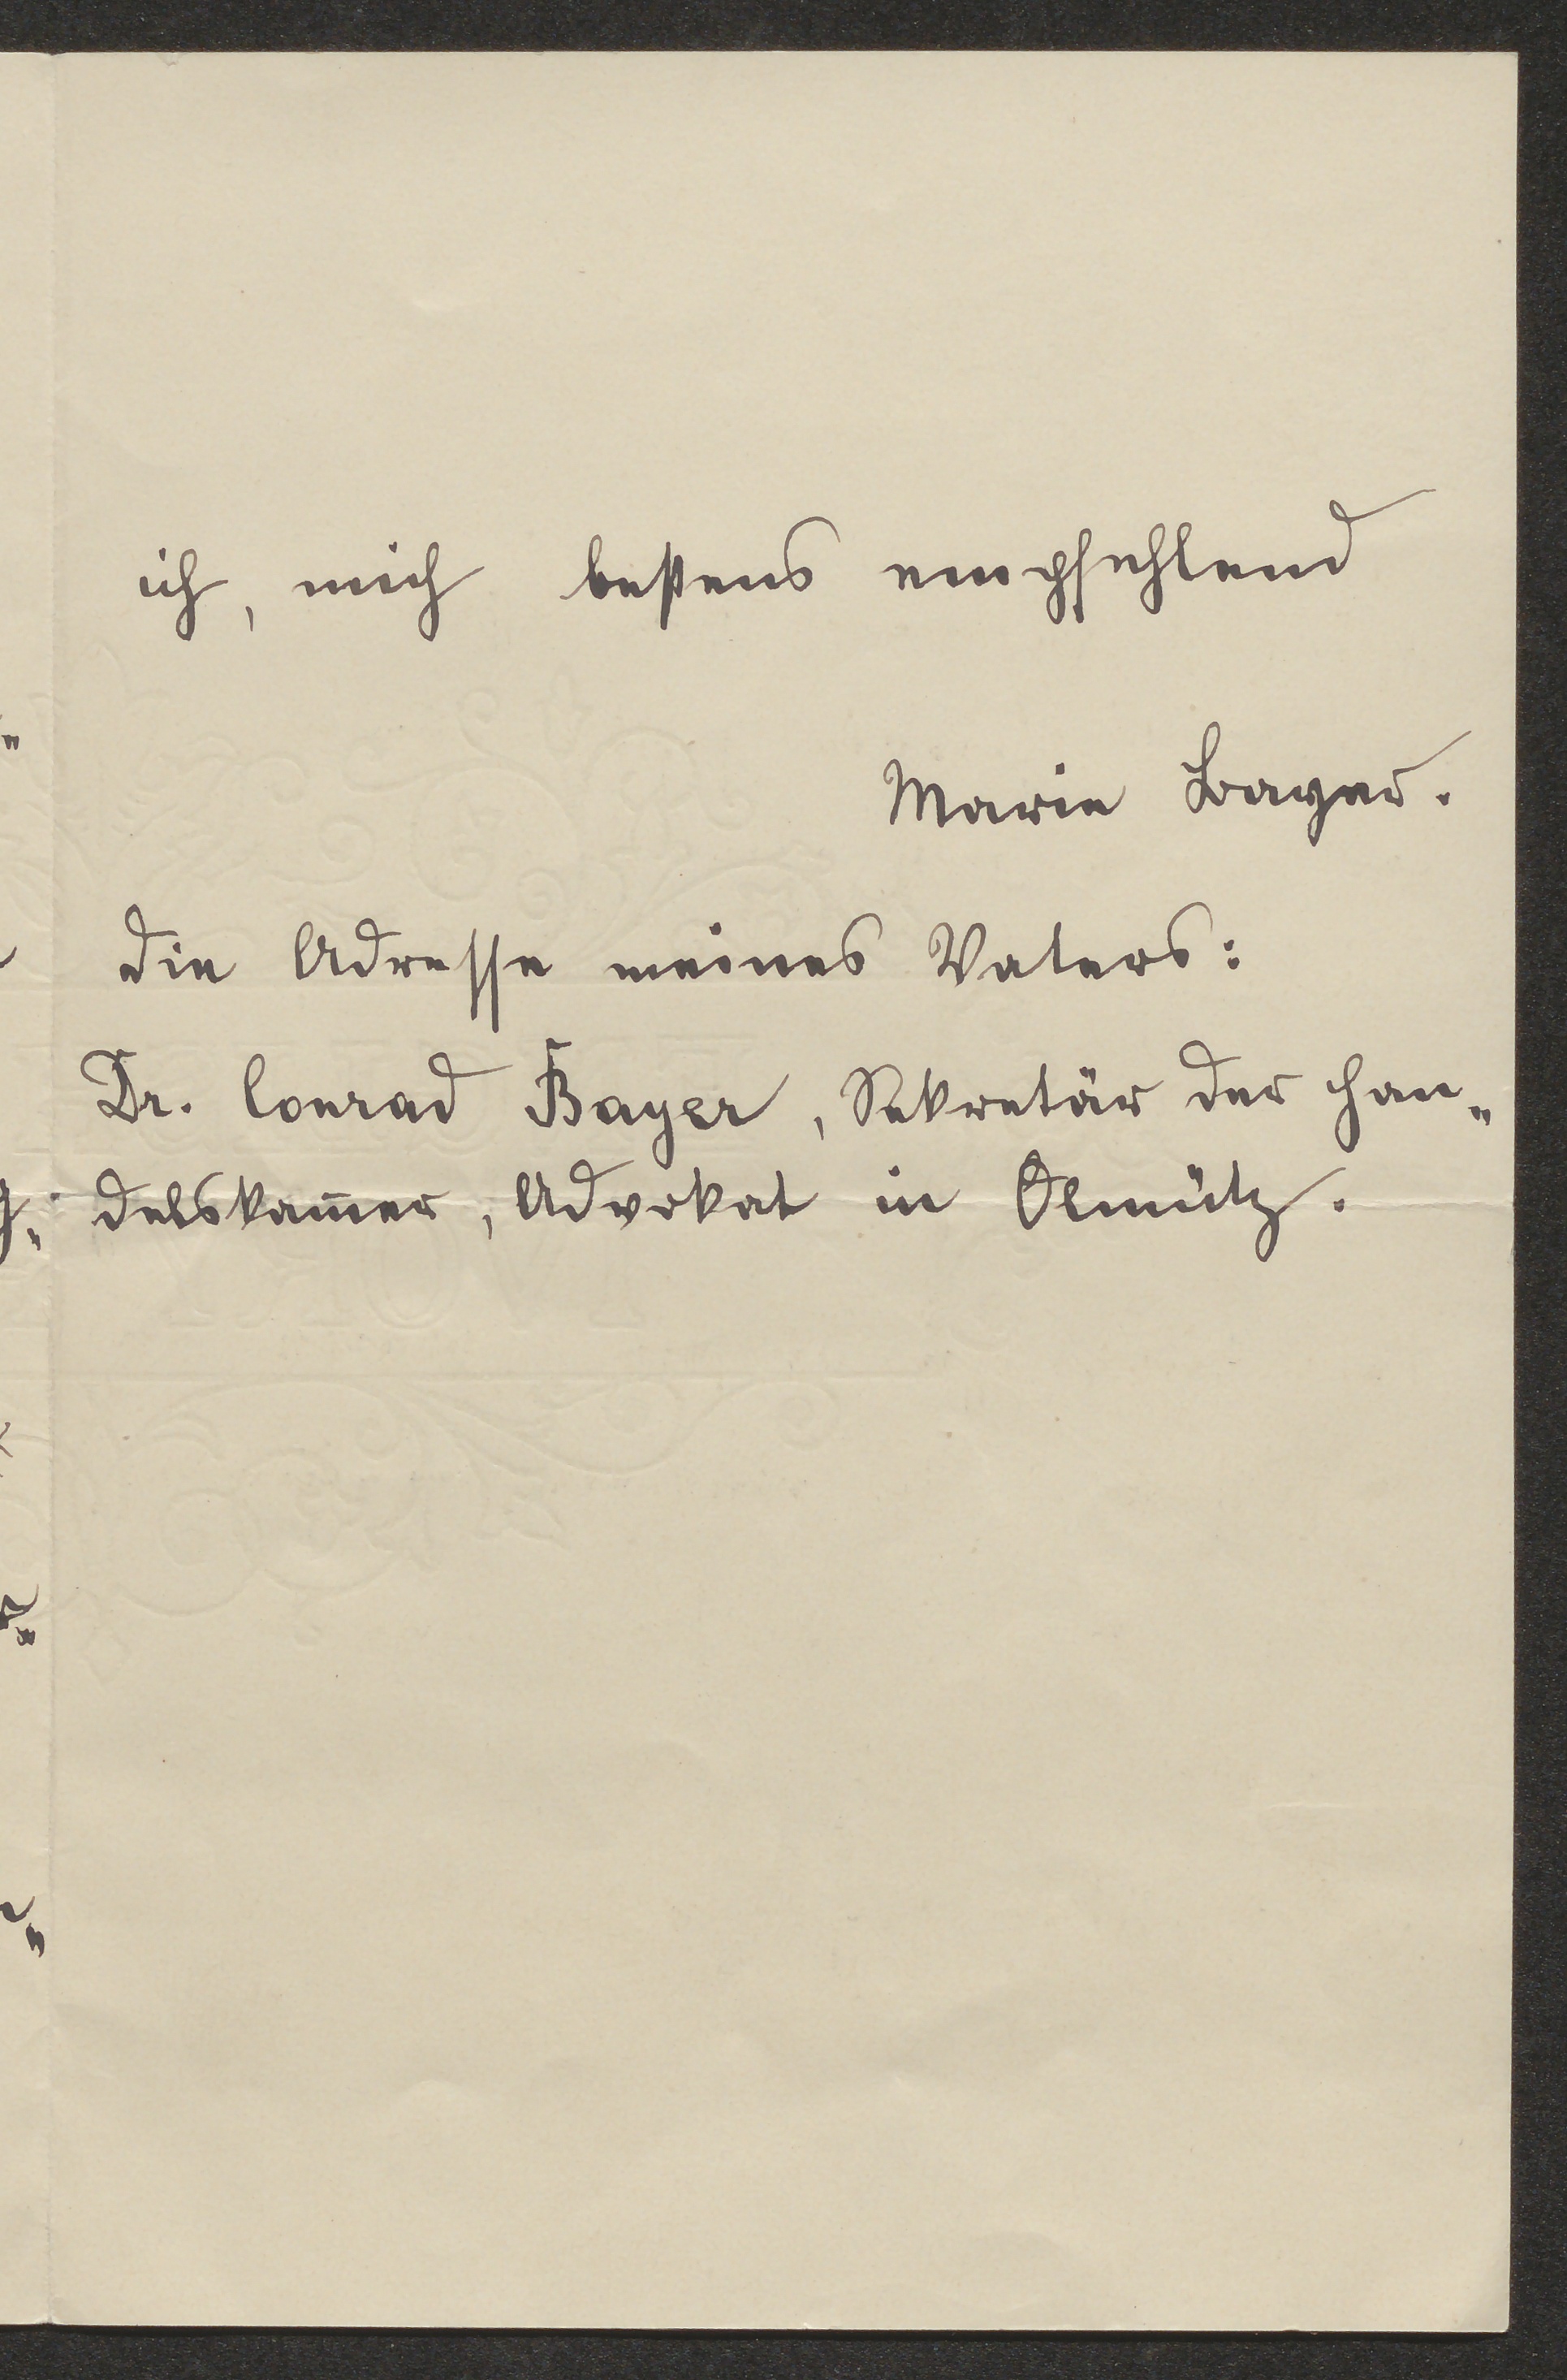 ich, mich bestens empfehlend
Marie Bayer.
Die Adresse meines Vaters:
Dr. Conrad Bayer, Sekretär der Han„
delskam̅er, Advokat in Olmütz.